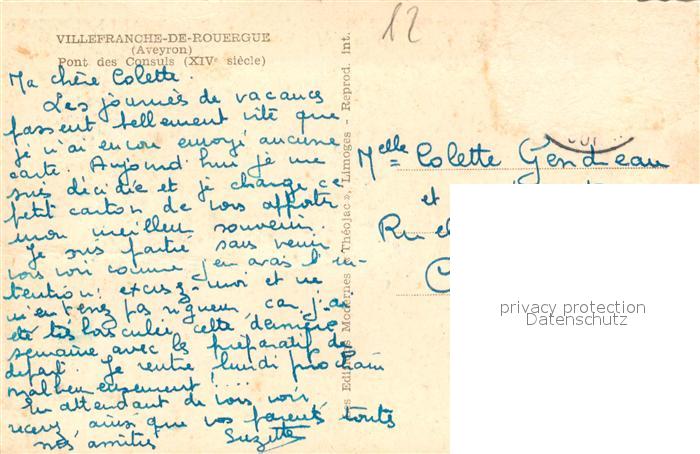 12
VILLEFRANCHE-DE-ROUERGUE
(Aveyron)
Pont des Consuls (XIVe siècle)
Ma chère Colette.
Les journées de vacances
passent tellement vite que
je n'ai encore envoyé aucune
carte. Aujourd'hui je me
suis décidée et je charge ce
petit carton de vous apporter
mon meilleur souvenir.
Je suis partie sans venir
vous voir comme j'en avais l'in-
tention: excusez-moi et ne
m'en tenez pas rigueur, car j'ai
été très bousculée cette dernière
semaine avec les préparatifs de
départ. Je rentre lundi prochain
malheureusement!....
En attendant de vous voir,
recevez, ainsi que vos parents toutes
nos amitiés Suzette
Les Editions Modernes « Théojac », Limoges - Reprod. int.
Melle Colette Gendreau
et
Rue
C
privacy protection
Datenschutz